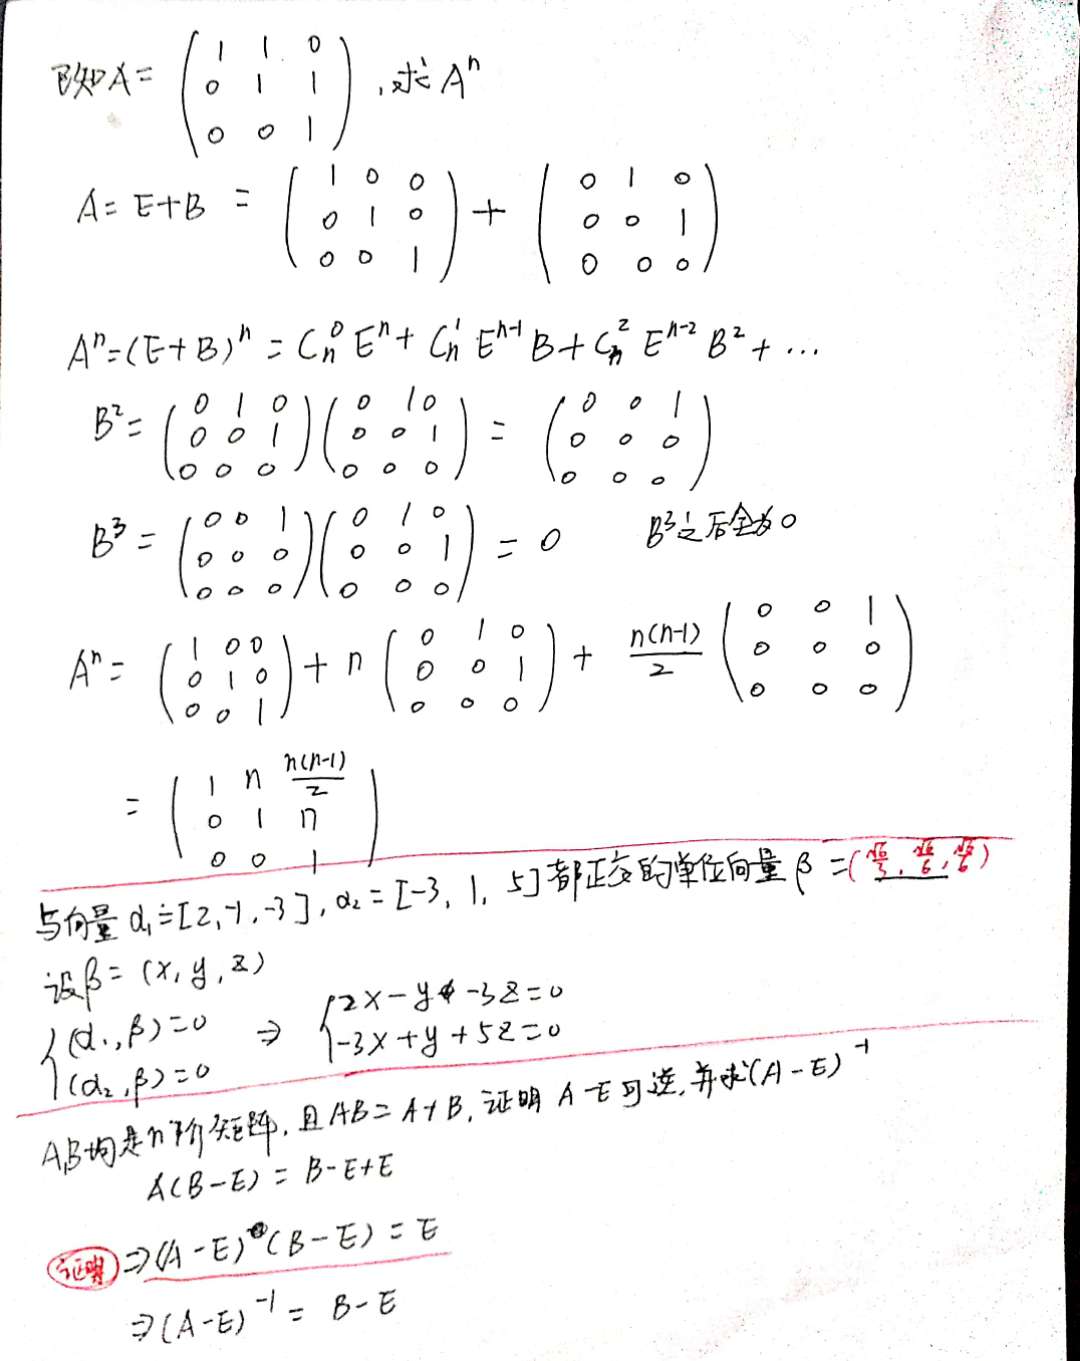 已知A= ( 1 1 0
0 1 1
0 0 1 ) ,求A^n
A=E+B = ( 1 0 0
0 1 0
0 0 1 ) + ( 0 1 0
0 0 1
0 0 0 )
A^n=(E+B)^n = C_n^0 E^n + C_n^1 E^{n-1} B + C_n^2 E^{n-2} B^2 + ...
B^2= ( 0 1 0
0 0 1
0 0 0 ) ( 0 1 0
0 0 1
0 0 0 ) = ( 0 0 1
0 0 0
0 0 0 )
B^3 = ( 0 0 1
0 0 0
0 0 0 ) ( 0 1 0
0 0 1
0 0 0 ) = 0 B^3之后全为0
A^n= ( 1 0 0
0 1 0
0 0 1 ) + n ( 0 1 0
0 0 1
0 0 0 ) + n(n-1)/2 ( 0 0 1
0 0 0
0 0 0 )
= ( 1 n n(n-1)/2
0 1 n
0 0 1 )
与向量 α₁=[2,-1,-3], α₂=[-3, 1, 5]都正交的单位向量 β =(√6/3, √6/6, √6/6)
设β= (x, y, z)
{ (α₁,β)=0 ⇒ { 2x-y-3z=0
(α₂,β)=0 -3x+y+5z=0
A,B均是n阶矩阵,且AB=A+B,证明 A-E可逆,并求(A-E)^{-1}
A(B-E) = B-E+E
证明 ⇒(A-E)(B-E) = E
⇒(A-E)^{-1} = B-E